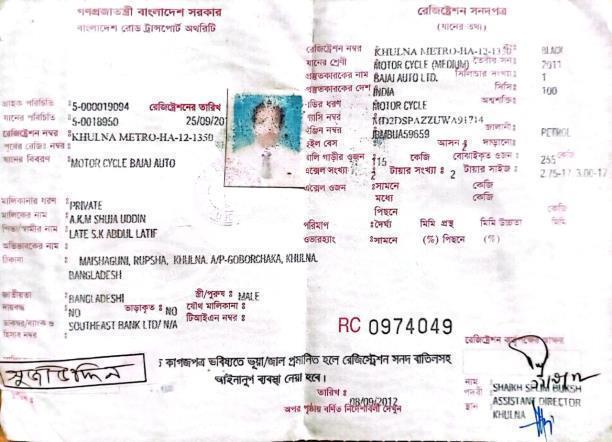 গণপ্রজাতন্ত্রী বাংলাদেশ সরকার
বাংলাদেশ রোড ট্রান্সপোর্ট অথরিটি
গ্রাহক পরিচিতি : 5-000019094 রেজিস্ট্রেশনের তারিখ
যানের পরিচিতি : 5-0018950 25/09/20
রেজিস্ট্রেশন নম্বর : KHULNA METRO-HA-12-1350
পূর্বের রেজিঃ নম্বর :
যানের বিবরণ : MOTOR CYCLE BAJAJ AUTO
মালিকানার ধরণ : PRIVATE
মালিকের নাম : A.K.M SHUJA UDDIN
পিতা/স্বামীর নাম : LATE S.K ABDUL LATIF
অভিভাবকের নাম :
ঠিকানা : MAISHAGUNI, RUPSHA, KHULNA. A/P-GOBORCHAKA, KHULNA.
BANGLADESH
জাতীয়তা : BANGLADESHI স্ত্রী/পুরুষ : MALE
দায়বদ্ধ : NO ভাড়াকৃত : NO যৌথ মালিকানা :
SOUTHEAST BANK LTD/ N/A টিআইএন নম্বর :
হিসাব নম্বর
রেজিস্ট্রেশন সনদপত্র
(যানের তথ্য)
রেজিস্ট্রেশন নম্বর KHULNA METRO-HA-12-1350 রং: BLACK
যানের শ্রেণী MOTOR CYCLE (MEDIUM) তৈরীর সন: 2011
প্রস্তুতকারকের নাম BAJAJ AUTO LTD. সিলিন্ডার সংখ্যা: 1
প্রস্তুতকারকের দেশ INDIA সিসি: 100
বডির ধরণ MOTOR CYCLE অশ্বশক্তি:
চ্যাসিস নম্বর MD2DSPAZZUWA91714
ইঞ্জিন নম্বর JBMBUA59659 জ্বালানী: PETROL
হুইল বেস আসন দাড়ানো:
খালি গাড়ীর ওজন : 115 কেজি বোঝাইকৃত ওজন : 255 কেজি
এক্সেল সংখ্যা : 2 টায়ার সংখ্যা : 2 টায়ার সাইজ : 2.75-17, 3.00-17
এক্সেল ওজন : সামনে কেজি
মধ্যে কেজি
পিছনে কেজি
পরিমাপ : দৈর্ঘ্য মিমি প্রস্থ মিমি উচ্চতা মিমি
ওভারহ্যাং : সামনে (%) পিছনে (%)
RC 0974049
সুজাউদ্দিন
কাগজপত্র ভবিষ্যতে ভূয়া/জাল প্রমানিত হলে রেজিস্ট্রেশন সনদ বাতিলসহ
আইনানুগ ব্যবস্থা নেয়া হবে।
তারিখ : 08/09/2012
অপর পৃষ্ঠায় বর্ণিত নির্দেশাবলী দেখুন
নাম SHAIKH SELIM BUKSH
পদবী ASSISTANT DIRECTOR
স্থান KHULNA